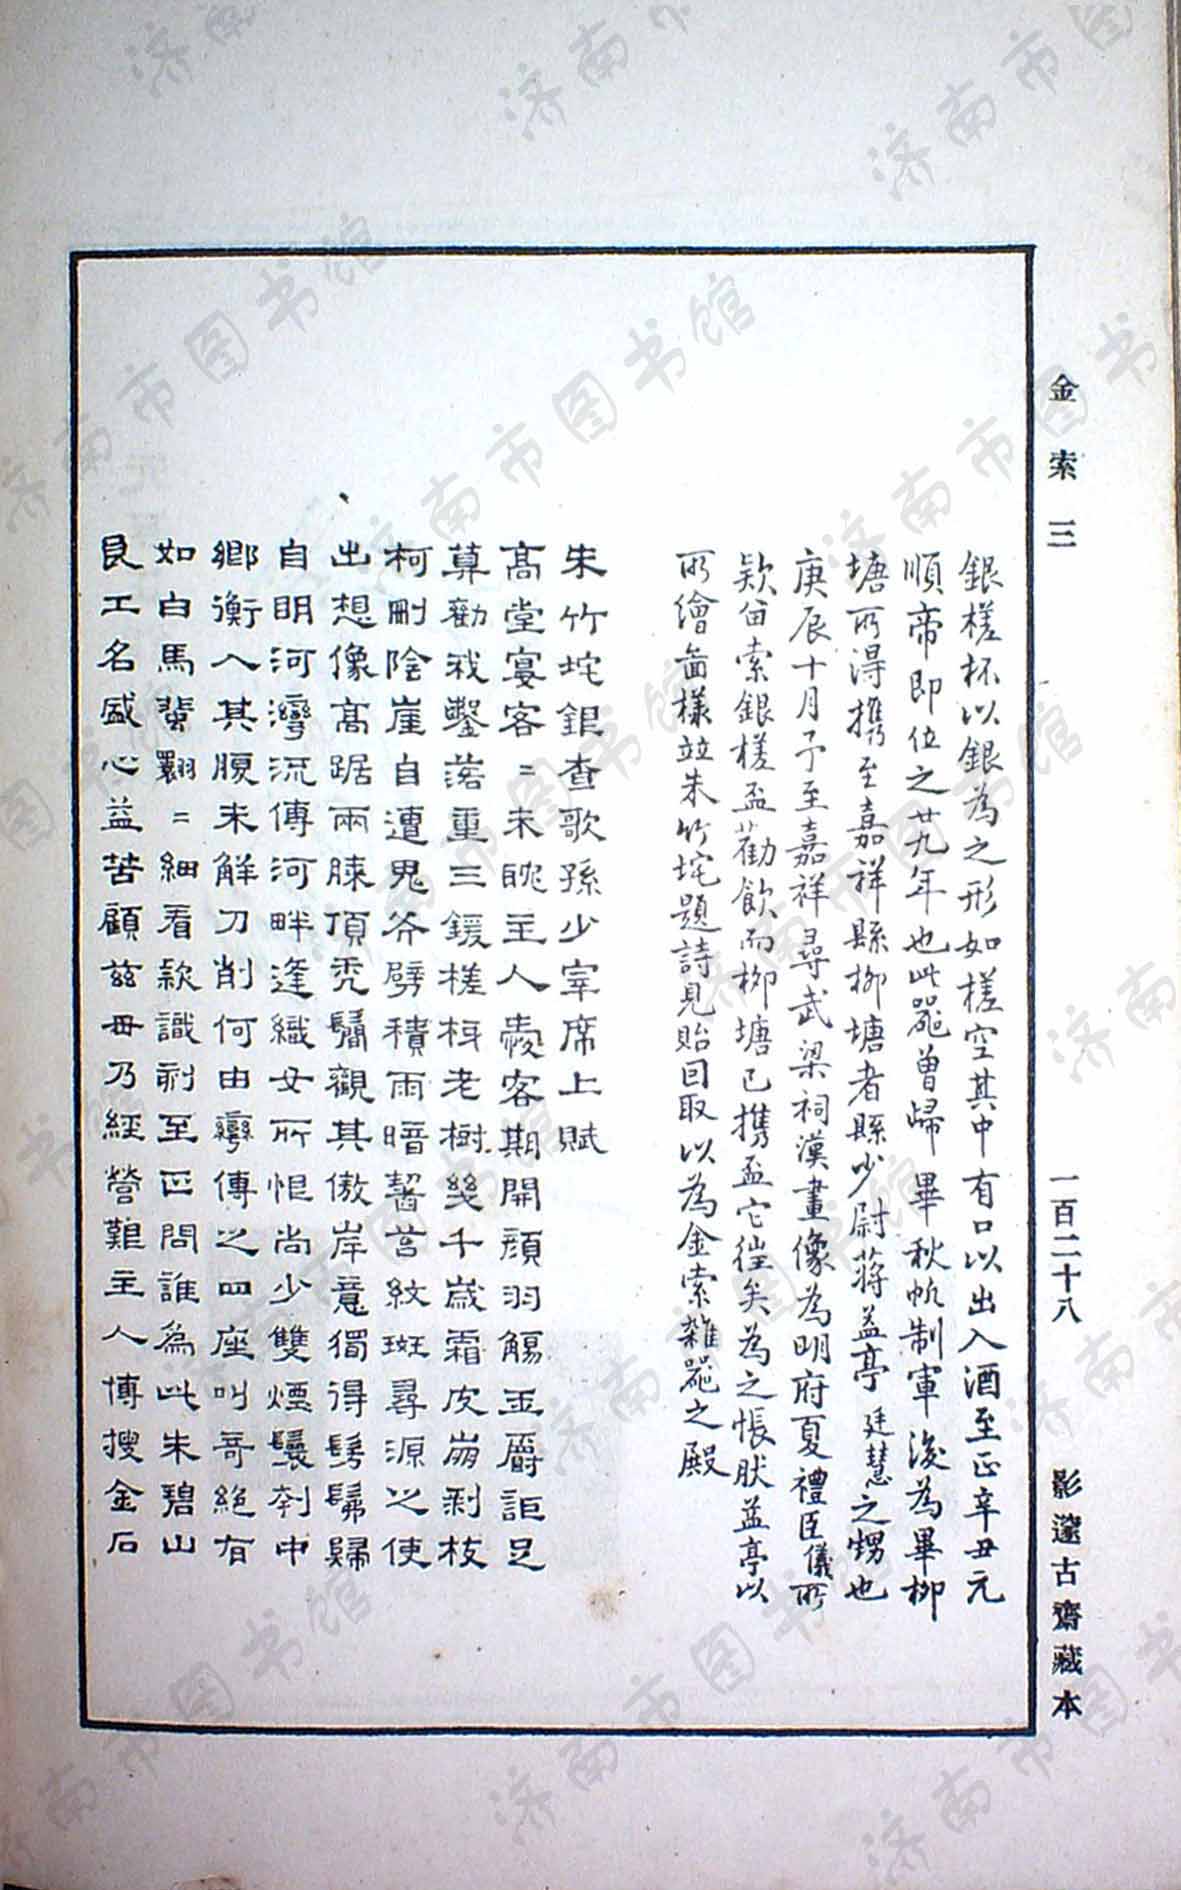 金索三 一百二十八 影邃古齋藏本
銀槎杯以銀為之形如槎空其中有口以出入酒至正辛丑元
順帝即位之廿九年也此器曾歸畢秋帆制軍後為畢柳
塘所得攜至嘉祥縣柳塘者縣少尉蔣益亭廷慧之甥也
庚辰十月予至嘉祥尋武梁祠漢畫像為明府夏禮臣儀所
欵留索銀槎盃勸飲而柳塘已攜盃它往矣為之悵肰益亭以
所繪圖樣並朱竹垞題詩見貽因取以為金索雜器之殿
朱竹垞銀查歌孫少宰席上賦
高堂宴客二未晚主人愛客期開顏羽觴玉爵詎足
算勸我鑿落重三鍰槎枒老樹幾千歲霜皮崩剥枝
柯刪陰崖自遭鬼斧劈積雨暗齧苔紋斑尋源之使
出想像高踞兩膝頂禿鬜觀其傲岸意獨得髣髴歸
自明河灣流傳河畔逢織女所恨尚少雙煙鬟刳中
鄉衡入其腹未解刀削何由彎傳之四座叫奇絕有
如白馬蜚翾二細看款識剏至正問誰爲此朱碧山
良工名盛心益苦顧兹毋乃經營難主人博搜金石
济南市图书馆